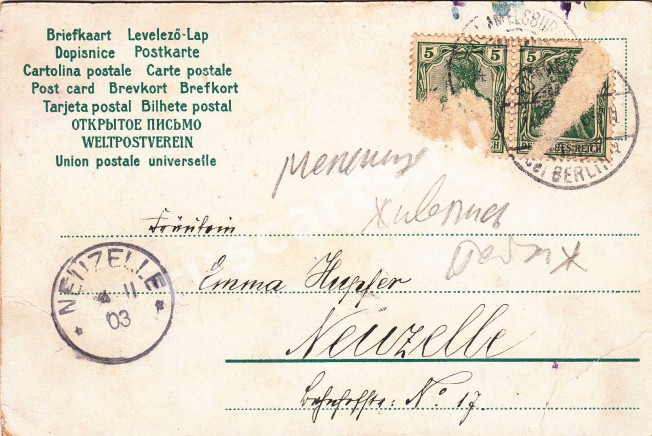 Briefkaart Levelező-Lap
Dopisnice Postkarte
Cartolina postale Carte postale
Post card Brevkort Brefkort
Tarjeta postal Bilhete postal
ОТКРЫТОЕ ПИСЬМО
WELTPOSTVEREIN
Union postale universelle
5 5
DEUTSCHES REICH
bei BERLIN
Fräulein
NEUZELLE
11
03
Emma Hupfer
Neuzelle
Bahnhofstr: No 17.